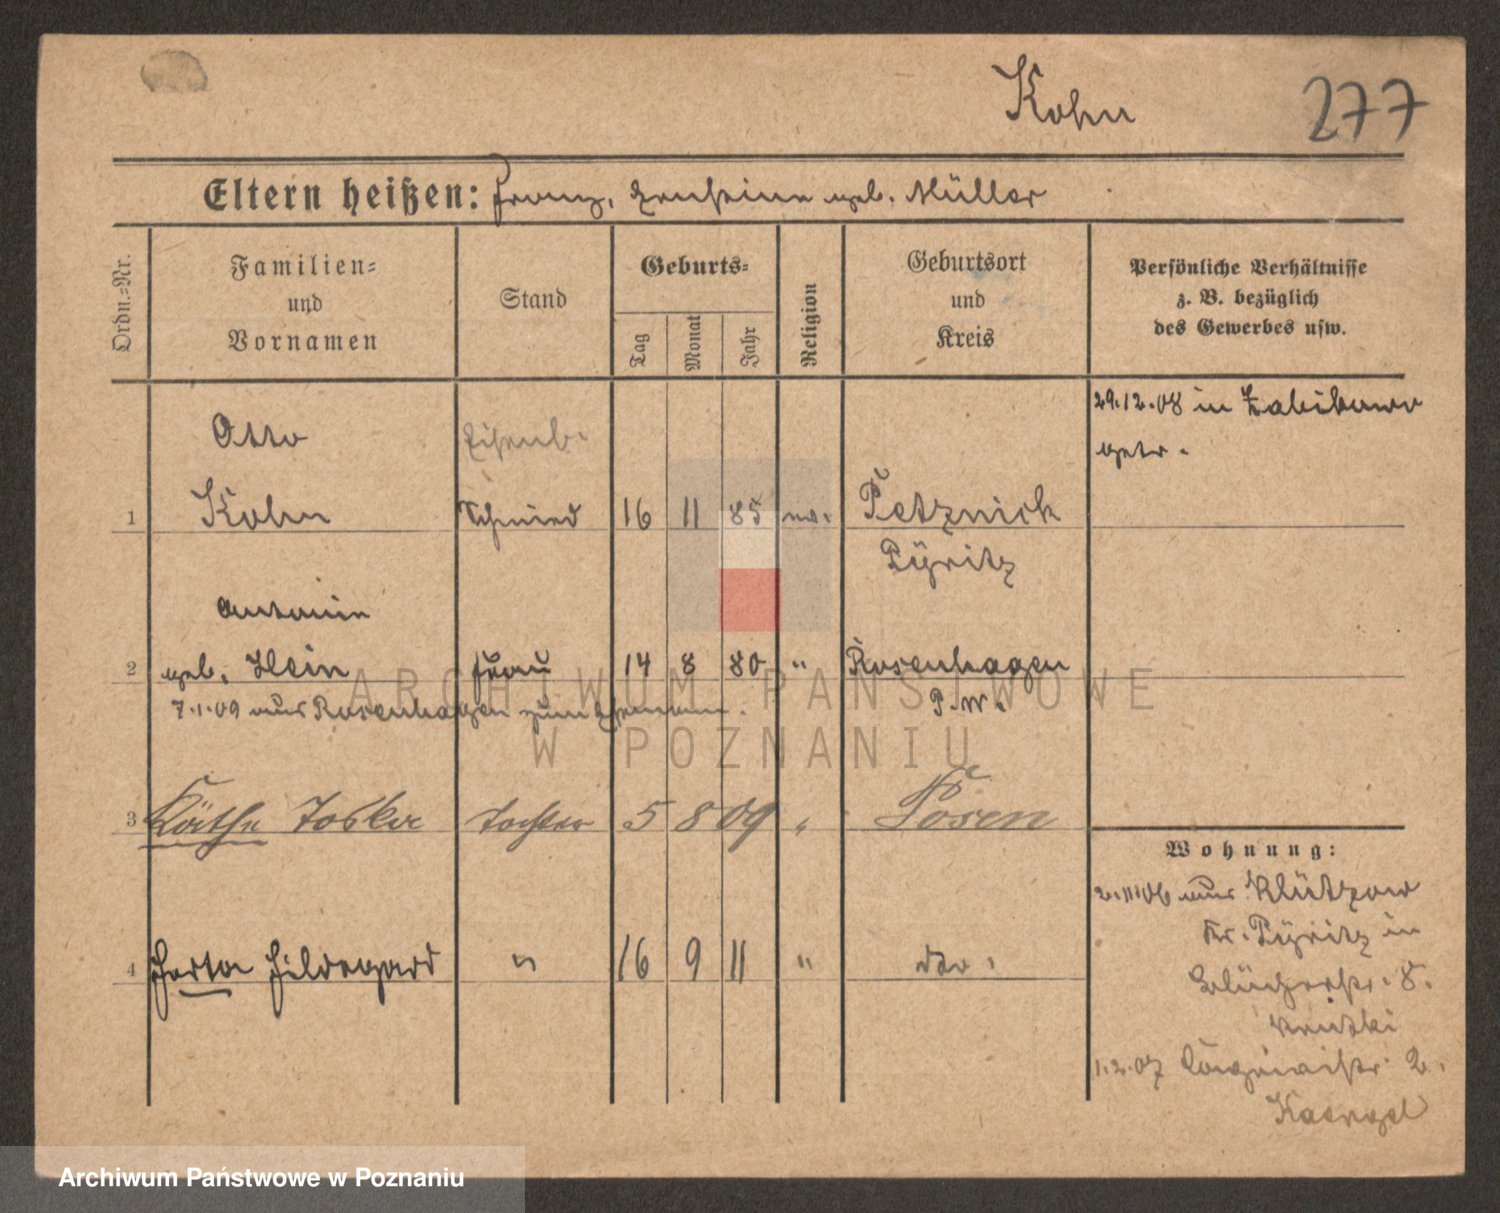 Kohn 277
Eltern heißen: Franz, geb. Müller
Ordn.=Nr.
Familien=
und
Vornamen
Stand
Geburts=
Tag
Monat
Jahr
Religion
Geburtsort
und
Kreis
Persönliche Verhältnisse
z. B. bezüglich
des Gewerbes usw.
29.12.08 in Zabikowo
getr.
Otto Eisenb.
1 Kohn Schmied 16 11 85 ev. Petznick
Pÿritz
Antonie
2 geb. Hein Frau 14 8 80 " Rosenhagen
7.1.09 aus Rosenhagen zum Ehemann. P.W.
3 Käthe Tochter 5 8 09 " Posen
Wohnung:
2.11.06 aus Klützow
Kr. Pÿritz in
4 Herta Hildegard " 16 9 11 " dto.
Blücherstr. 8.
1.2.07 2.
ARCHIWUM PAŃSTWOWE
W POZNANIU
Archiwum Państwowe w Poznaniu